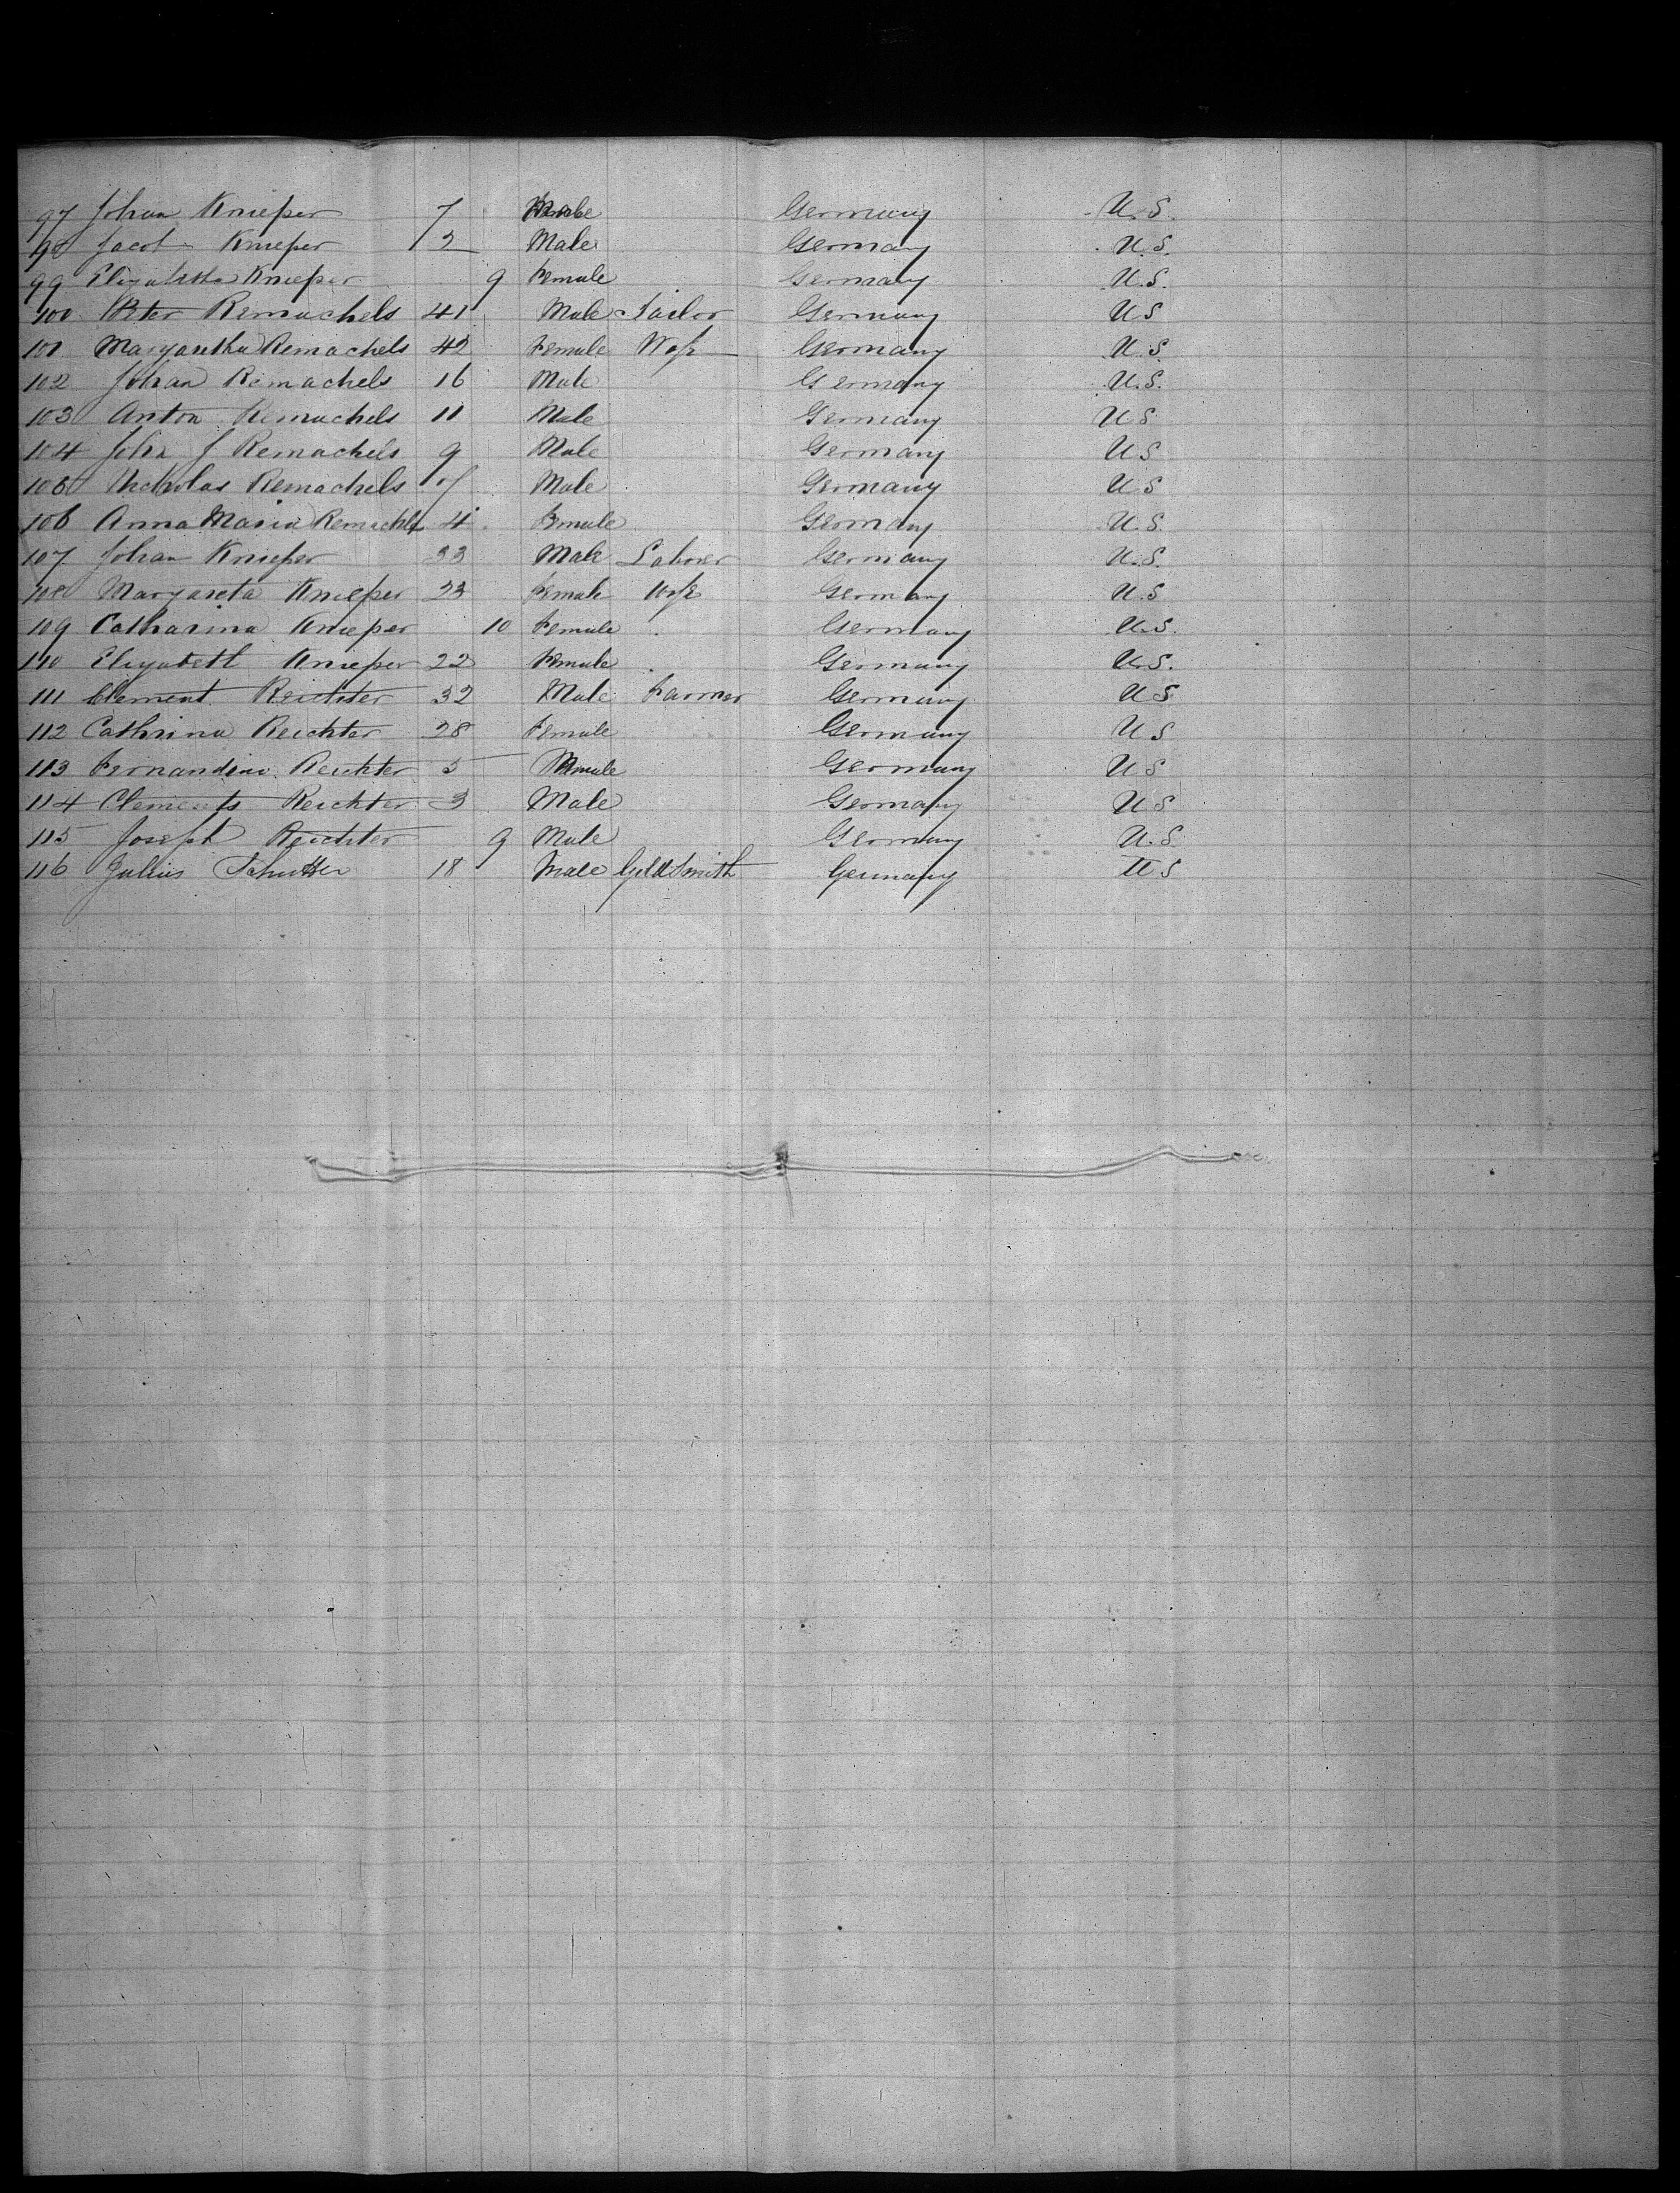 97 Johan Knieper 7 Male Germany U.S.
98 Jacob Knieper 2 Male Germany U.S.
99 Elizabetha Knieper 9 Female Germany U.S.
100 Peter Remachels 41 Male Tailor Germany U S
101 Margaretha Remachels 42 Female Wife Germany U.S.
102 Johan Remachels 16 Male Germany U.S.
103 Anton Remachels 11 Male Germany U S
104 John J Remachels 9 Male Germany U S
105 Nicholas Remachels Male Germany U S
106 Anna Maria Remachls 4 Female Germany U.S.
107 Johan Knieper 33 Male Laborer Germany U.S.
108 Margareta Knieper 23 Female Wife Germany U.S
109 Catharina Knieper 10 Female Germany U.S.
110 Elizabeth Knieper 22 Female Germany U.S.
111 Clement Reichter 32 Male Farmer Germany U S
112 Cathrina Reichter 28 Female Germany U S
113 Fernandine Reichter 5 Female Germany U S
114 Clements Reichter 3 Male Germany U S
115 Joseph Reichter 9 Male Germany U.S
116 Julius Schutter 18 Male GoldSmith Germany U S